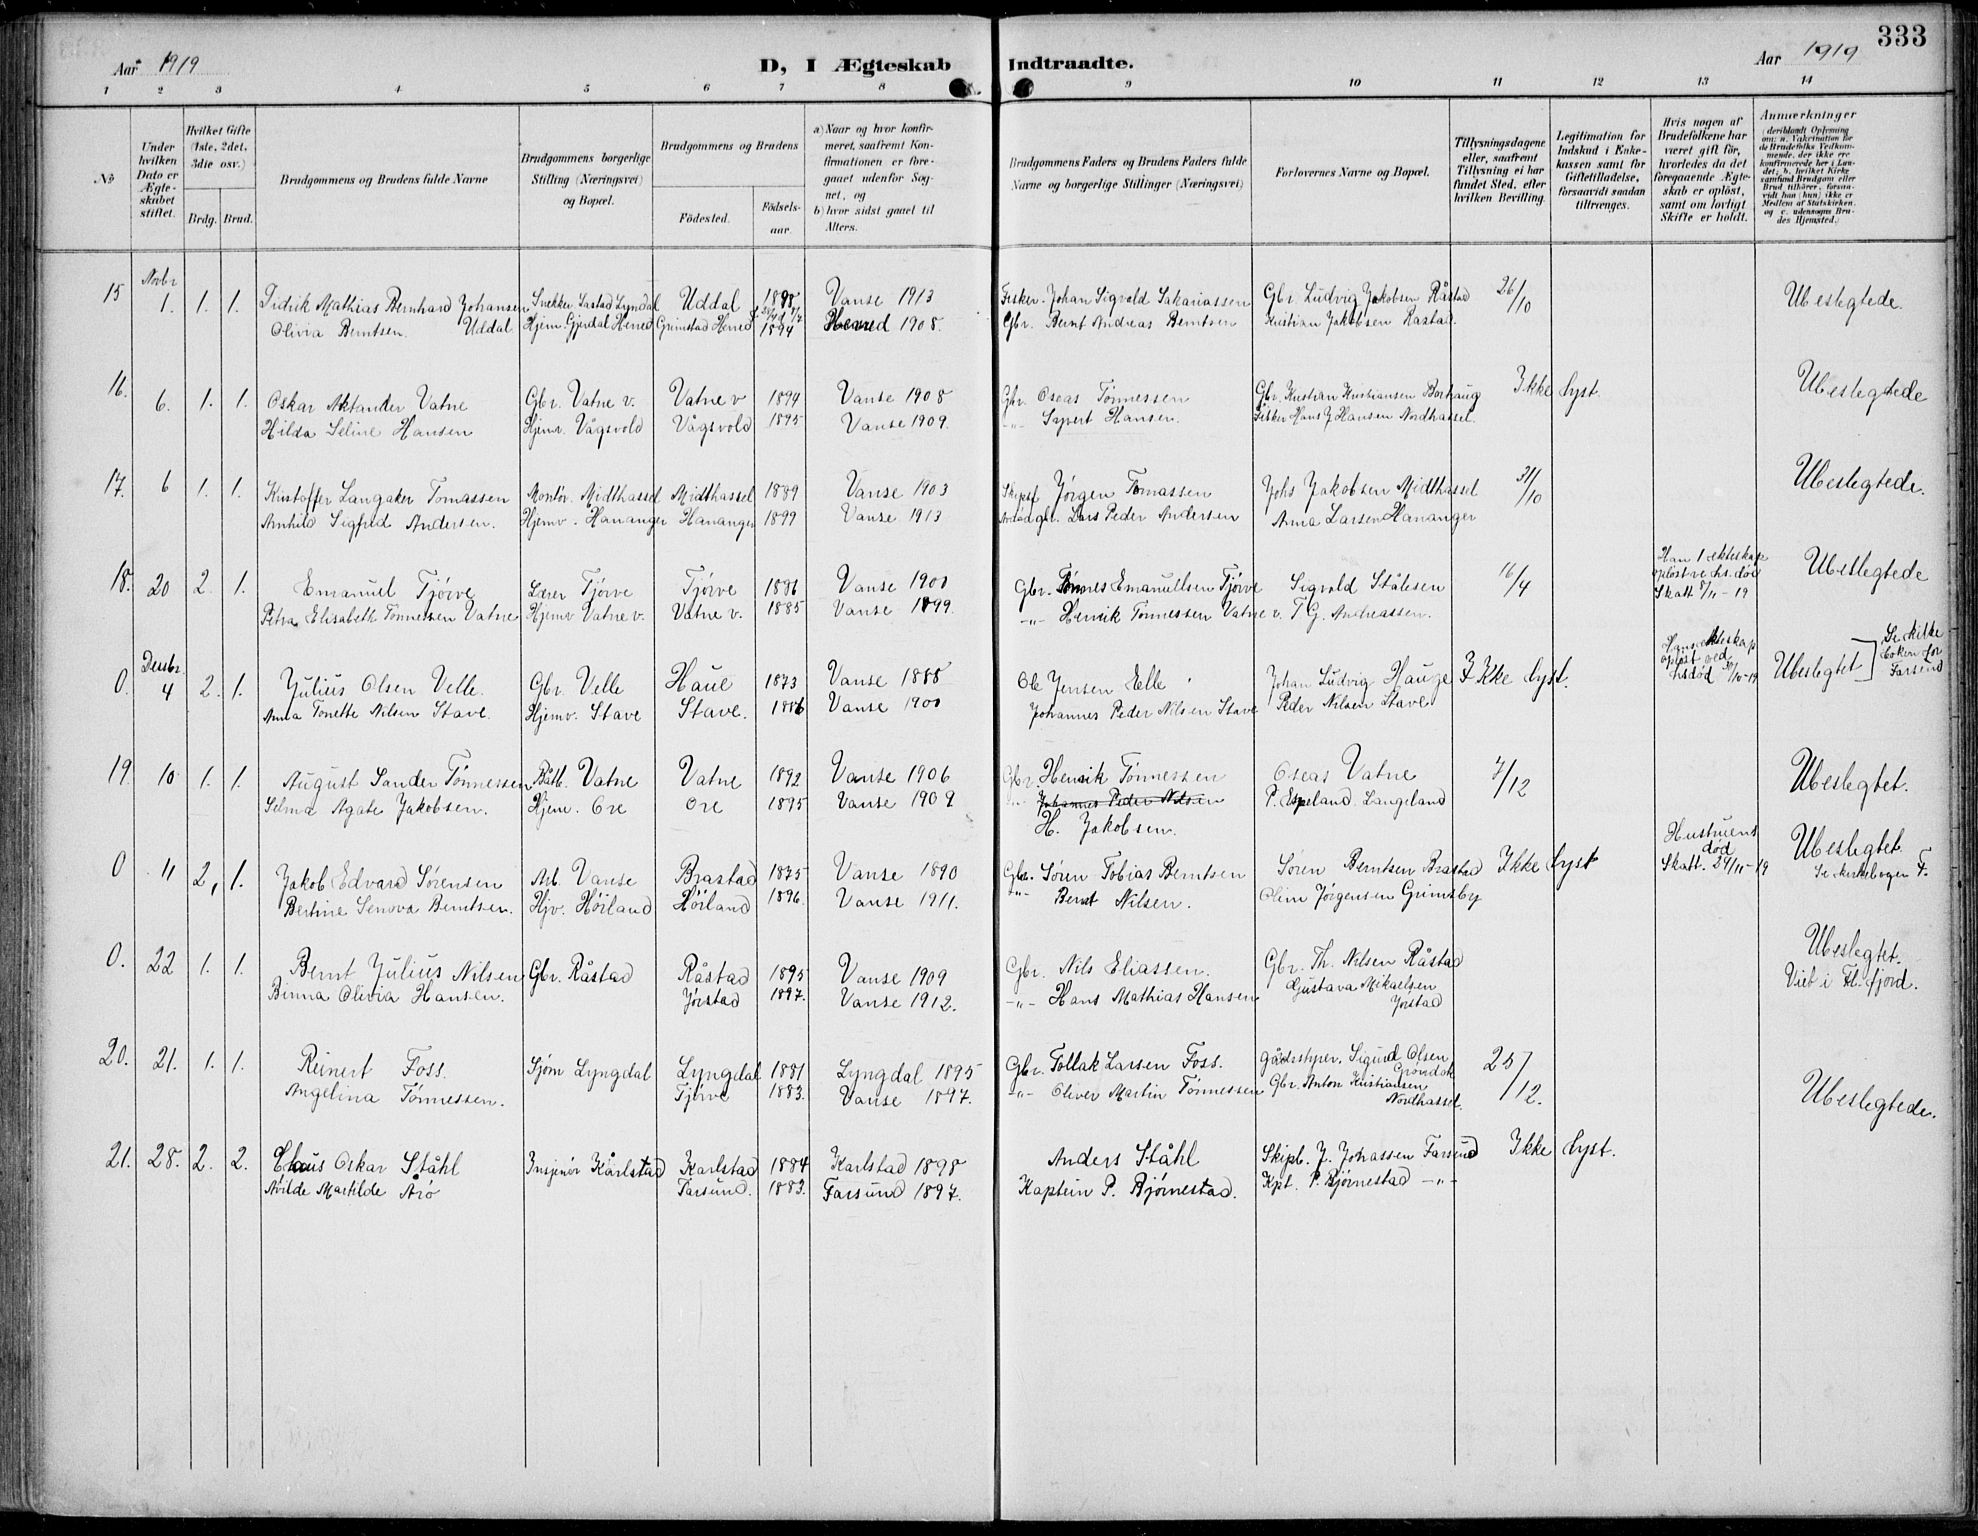 333
Aar 1919
D, I Ægteskab Indtraadte.
Aar 1919
1 2 3 4 5 6 7 8 9 10 11 12 13 14
No
Under hvilken Dato er Ægteskabet stiftet.
Hvilket Gifte (1ste, 2det, 3die osv.)
Brdg. Brud.
Brudgommens og Brudens fulde Navne
Brudgommens borgerlige Stilling (Næringsvei) og Bopæl.
Brudgommens og Brudens
Fødested. Fødselsaar.
a) Naar og hvor konfirmeret, saafremt Konfirmationen er foregaaet udenfor Sognet, og
b) hvor sidst gaaet til Alters.
Brudgommens Faders og Brudens Faders fulde Navne og borgerlige Stillinger (Næringsvei)
Forlovernes Navne og Bopæl.
Tillysningsdagene eller, saafremt Tillysning ei har fundet Sted, efter hvilken Bevilling.
Legitimation for Indskud i Enkekassen samt for Giftetilladelse, forsaavidt saadan tiltrænges.
Hvis nogen af Brudefolkene har været gift før, hvorledes da det foregaaende Ægteskab er opløst, samt om lovligt Skifte er holdt.
Anmærkninger
Novbr
15 1. 1. 1. Didrik Mathias Bernhard Johansen Uddal Snekker Lyndal Uddal 1895 Vanse 1913 Fisker. Johan Sigvald Sakariassen Gbr Ludvig Jakobsen Råstad 26/10 Ubeslegtede.
Olivia Berntsen. Hjem. Gjerdal Herred Grimstad Herred 1894 Herred 1908. Gbr. Bernt Andreas Berntsen Kristian Jakobsen Råstad.
16. 6. 1. 1. Oskar Aktander Vatne Gbr. Vatne v. Vatne v 1894 Vanse 1908 Gbr. Oseas Tönnessen Gbr. Kristian Kristiansen Borhaug Ikke lyst. Ubeslegtede
Hilda Seline Hansen Hjemv. Vågsvold Vågsvold 1895 Vanse 1909. -"- Syvert Hansen. Fisker Hans J Hansen Nordhassel.
17. 6 1. 1. Kristoffer Langaker Tomassen Montør. Midthassel Midthassel 1889 Vanse 1903 Jörgen Tomassen Johs Jakobsen Midthassel 31/10 Ubeslegtede.
Arnhild Sigfrid Andersen. Hjemv. Hananger Hananger 1899 Vanse 1913 gbr. Lars Peder Andersen Anna Larsen Hananger
18. 20 2. 1. Emanuel Tjörve Lærer Tjörve Tjörve 1886 Vanse 1900 Gbr. Tönnes Emanuelsen Tjörve Sigvald Stålesen 16/4 Ubeslegtede
Petra Elisabeth Tönnessen Vatne Hjemv Vatne v. Vatne v. 1885 Vanse 1899. -"- Henrik Tönnessen Vatne v. T. G. Andreassen.
Desbr
0. 4 2. 1. Julius Olsen Velle. Gbr. Velle Haue 1873 Vanse 1888 Ole Jensen Elle Johan Ludvig Hauge Ikke lyst. Ubeslegtet Se kirkeboken for Farsund
Anna Tonette Nilsen Stave. Hjemv. Stave Stave. 1886 Vanse 1900 Johannes Peder Nilsen Stave Peder Nilsen Stave
19 10 1. 1. August Sander Tönnessen Båtb. Vatne Vatne 1892 Vanse 1906 Gbr. Henrik Tönnessen Oseas Vatne 7/12 Ubeslegtet.
Selma Agate Jakobsen. Hjem. Ore Ore 1895 Vanse 1909 -"- Johannes Peder Nilsen P. Espeland Langeland
H. Jakobsen.
0 11 2, 1. Jakob Edvard Sörensen Arb. Vanse Brastad 1875 Vanse 1890 Gbr. Sören Tobias Berntsen Sören Berntsen Brastad Ikke lyst Hustruens död Skatt. 24/11-19 Ubeslegtet.
Bertine Senova Berntsen. Hjv. Höiland Höiland 1896. Vanse 1911. -"- Bernt Nilsen. Oline Jörgensen Grimsby Se kirkebogen F.
0. 22 1. 1. Bernt Julius Nilsen Gbr. Råstad Råstad 1895 Vanse 1909 Gbr. Nils Eliassen. Gbr. Th. Nilsen Råstad Ubeslegtet.
Binna Olivia Hansen. Jörstad 1897. Vanse 1912. -"- Hans Mathias Hansen Gustava Mikaelsen Jörstad Viet i Fl.fjord.
20. 21. 1. 1. Reinert Foss. Sjöm Lyngdal Lyngdal 1881 Lyngdal 1895 Gbr. Tollak Larsen Foss. Gårdsstyrer. Sigurd Olsen 25/12. Ubeslegtede.
Angelina Tönnessen. Tjörve 1883. Vanse 1897. -"- Oliver Martin Tönnessen Gbr. Anton Kristiansen Nordhassel.
21. 28. 2. 2. Claus Oskar Ståhl Insjenör Karlstad Karlstad 1884 Karlstad 1898 Anders Ståhl Skipb. J. Johassen Farsund Ikke lyst.
Matilde Årö Farsund. 1883. Farsund 1897. Kaptein P. Björnestad. Kpt. P. Björnestad -"-